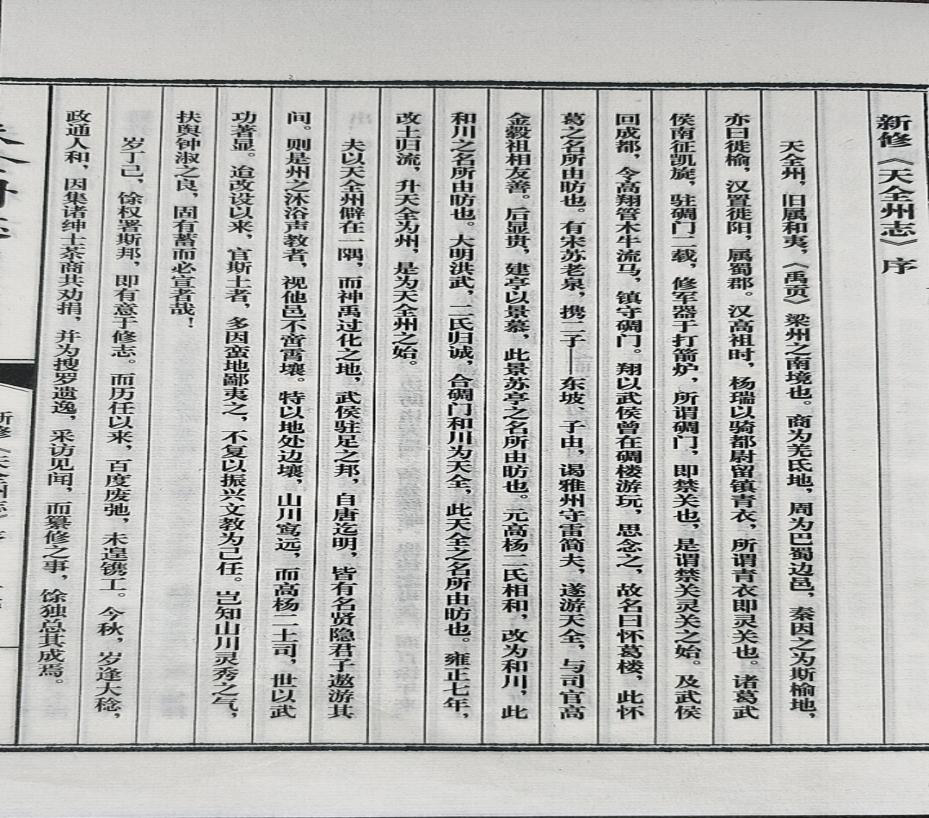 新修《天全州志》序
天全州，旧属和夷，《禹贡》梁州之南境也。商为羌氐地，周为巴蜀边邑，秦因之为斯榆地，
亦曰徙榆，汉置徙阳，属蜀郡。汉高祖时，杨瑞以骑都尉留镇青衣，所谓青衣即灵关也。诸葛武
侯南征凯旋，驻碉门二载，修军器于打箭炉，所谓碉门，即禁关也，是谓禁关灵关之始。及武侯
回成都，令高翔管木牛流马，镇守碉门。翔以武侯曾在碉楼游玩，思念之，故名曰怀葛楼，此怀
葛之名所由昉也。有宋苏老泉，携二子——东坡、子由，谒雅州守雷简夫，遂游天全，与司官高
金毅祖相友善。后显贵，建亭以景慕，此景苏亭之名所由昉也。元高杨二氏相和，改为和川，此
和川之名所由昉也。大明洪武，二氏归诚，合碉门和川为天全，此天全之名所由昉也。雍正七年，
改土归流，升天全为州，是为天全州之始。
夫以天全州僻在一隅，而神禹过化之地，武侯驻足之邦，自唐迄明，皆有名贤隐君子遨游其
间。则是州之沐浴声教者，视他邑不啻霄壤。特以地处边壤，山川窎远，而高杨二土司，世以武
功著显。迨改设以来，官斯土者，多因蛮地鄙夷之，不复以振兴文教为己任。岂知山川灵秀之气，
扶舆钟淑之良，固有蓄而必宣者哉！
岁丁己，馀权署斯邦，即有意于修志。而历任以来，百度废弛，未遑镌工。今秋，岁逢大稔，
政通人和，因集诸绅士茶商共劝捐，并为搜罗遗逸，采访见闻，而纂修之事，馀独总其成焉。